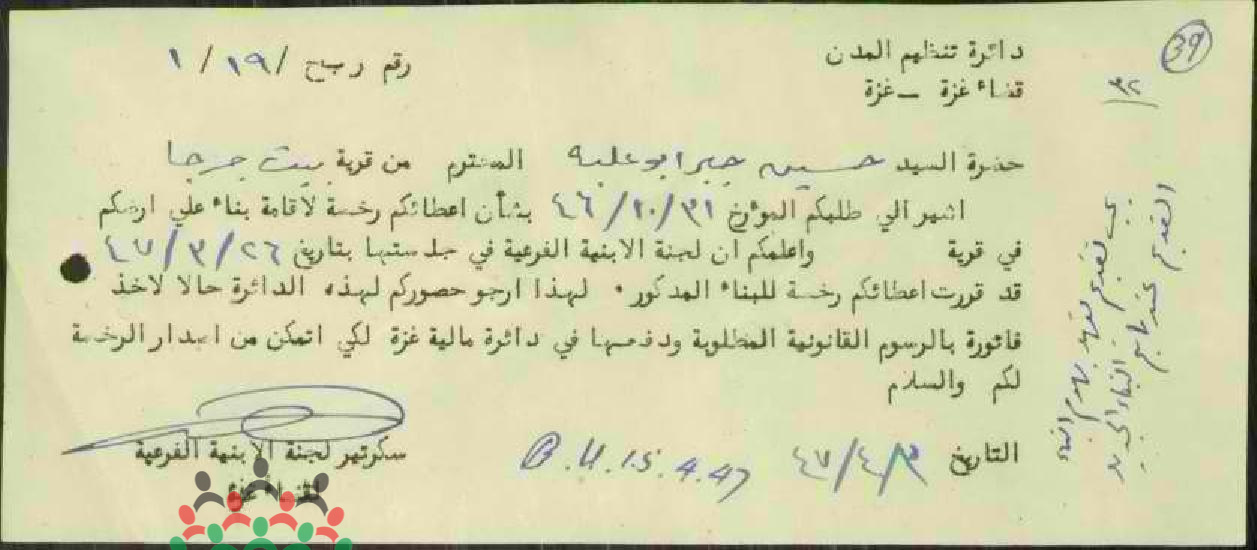 39
٣٢/
دائرة تنظيم المدن
رقم ربح /١٩/ ١
قضاء غزة — غزة
حضرة السيد حسين جبر ابو علبه المحترم من قرية بيت جرجا
اشير الي طلبكم المؤرخ ٤٦/١٠/٣١ بشأن اعطائكم رخصة لاقامة بناء علي ارضكم
في قرية واعلمكم ان لجنة الابنية الفرعية في جلستها بتاريخ ٤٧/٣/٢٦
قد قررت اعطائكم رخصة للبناء المذكور . لهذا ارجو حضوركم لهذه الدائرة حالا لاخذ
فاتورة بالرسوم القانونية المطلوبة ودفعها في دائرة مالية غزة لكي اتمكن من اصدار الرخصة
لكم والسلام
التاريخ ٤٧/٤/٣
B.U. 15.4.47
سكرتير لجنة الابنية الفرعية
لقضاء غزة
يجب تقديم تعهد بهدم البناء
القديم عند تاريخ البناء الجديد